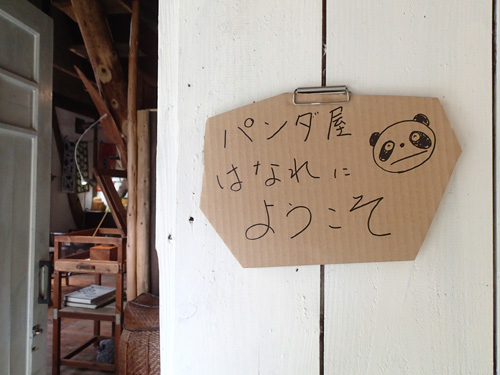 パンダ屋
はなれに
ようこそ